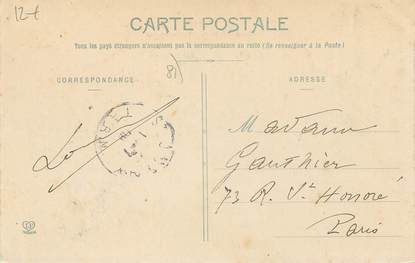 12-t
CARTE POSTALE
Tous les pays étrangers n'acceptent pas la correspondance au recto (Se renseigner à la Poste)
81
CORRESPONDANCE
ADRESSE
Madame
Gauthier
73 R. St Honoré
Paris